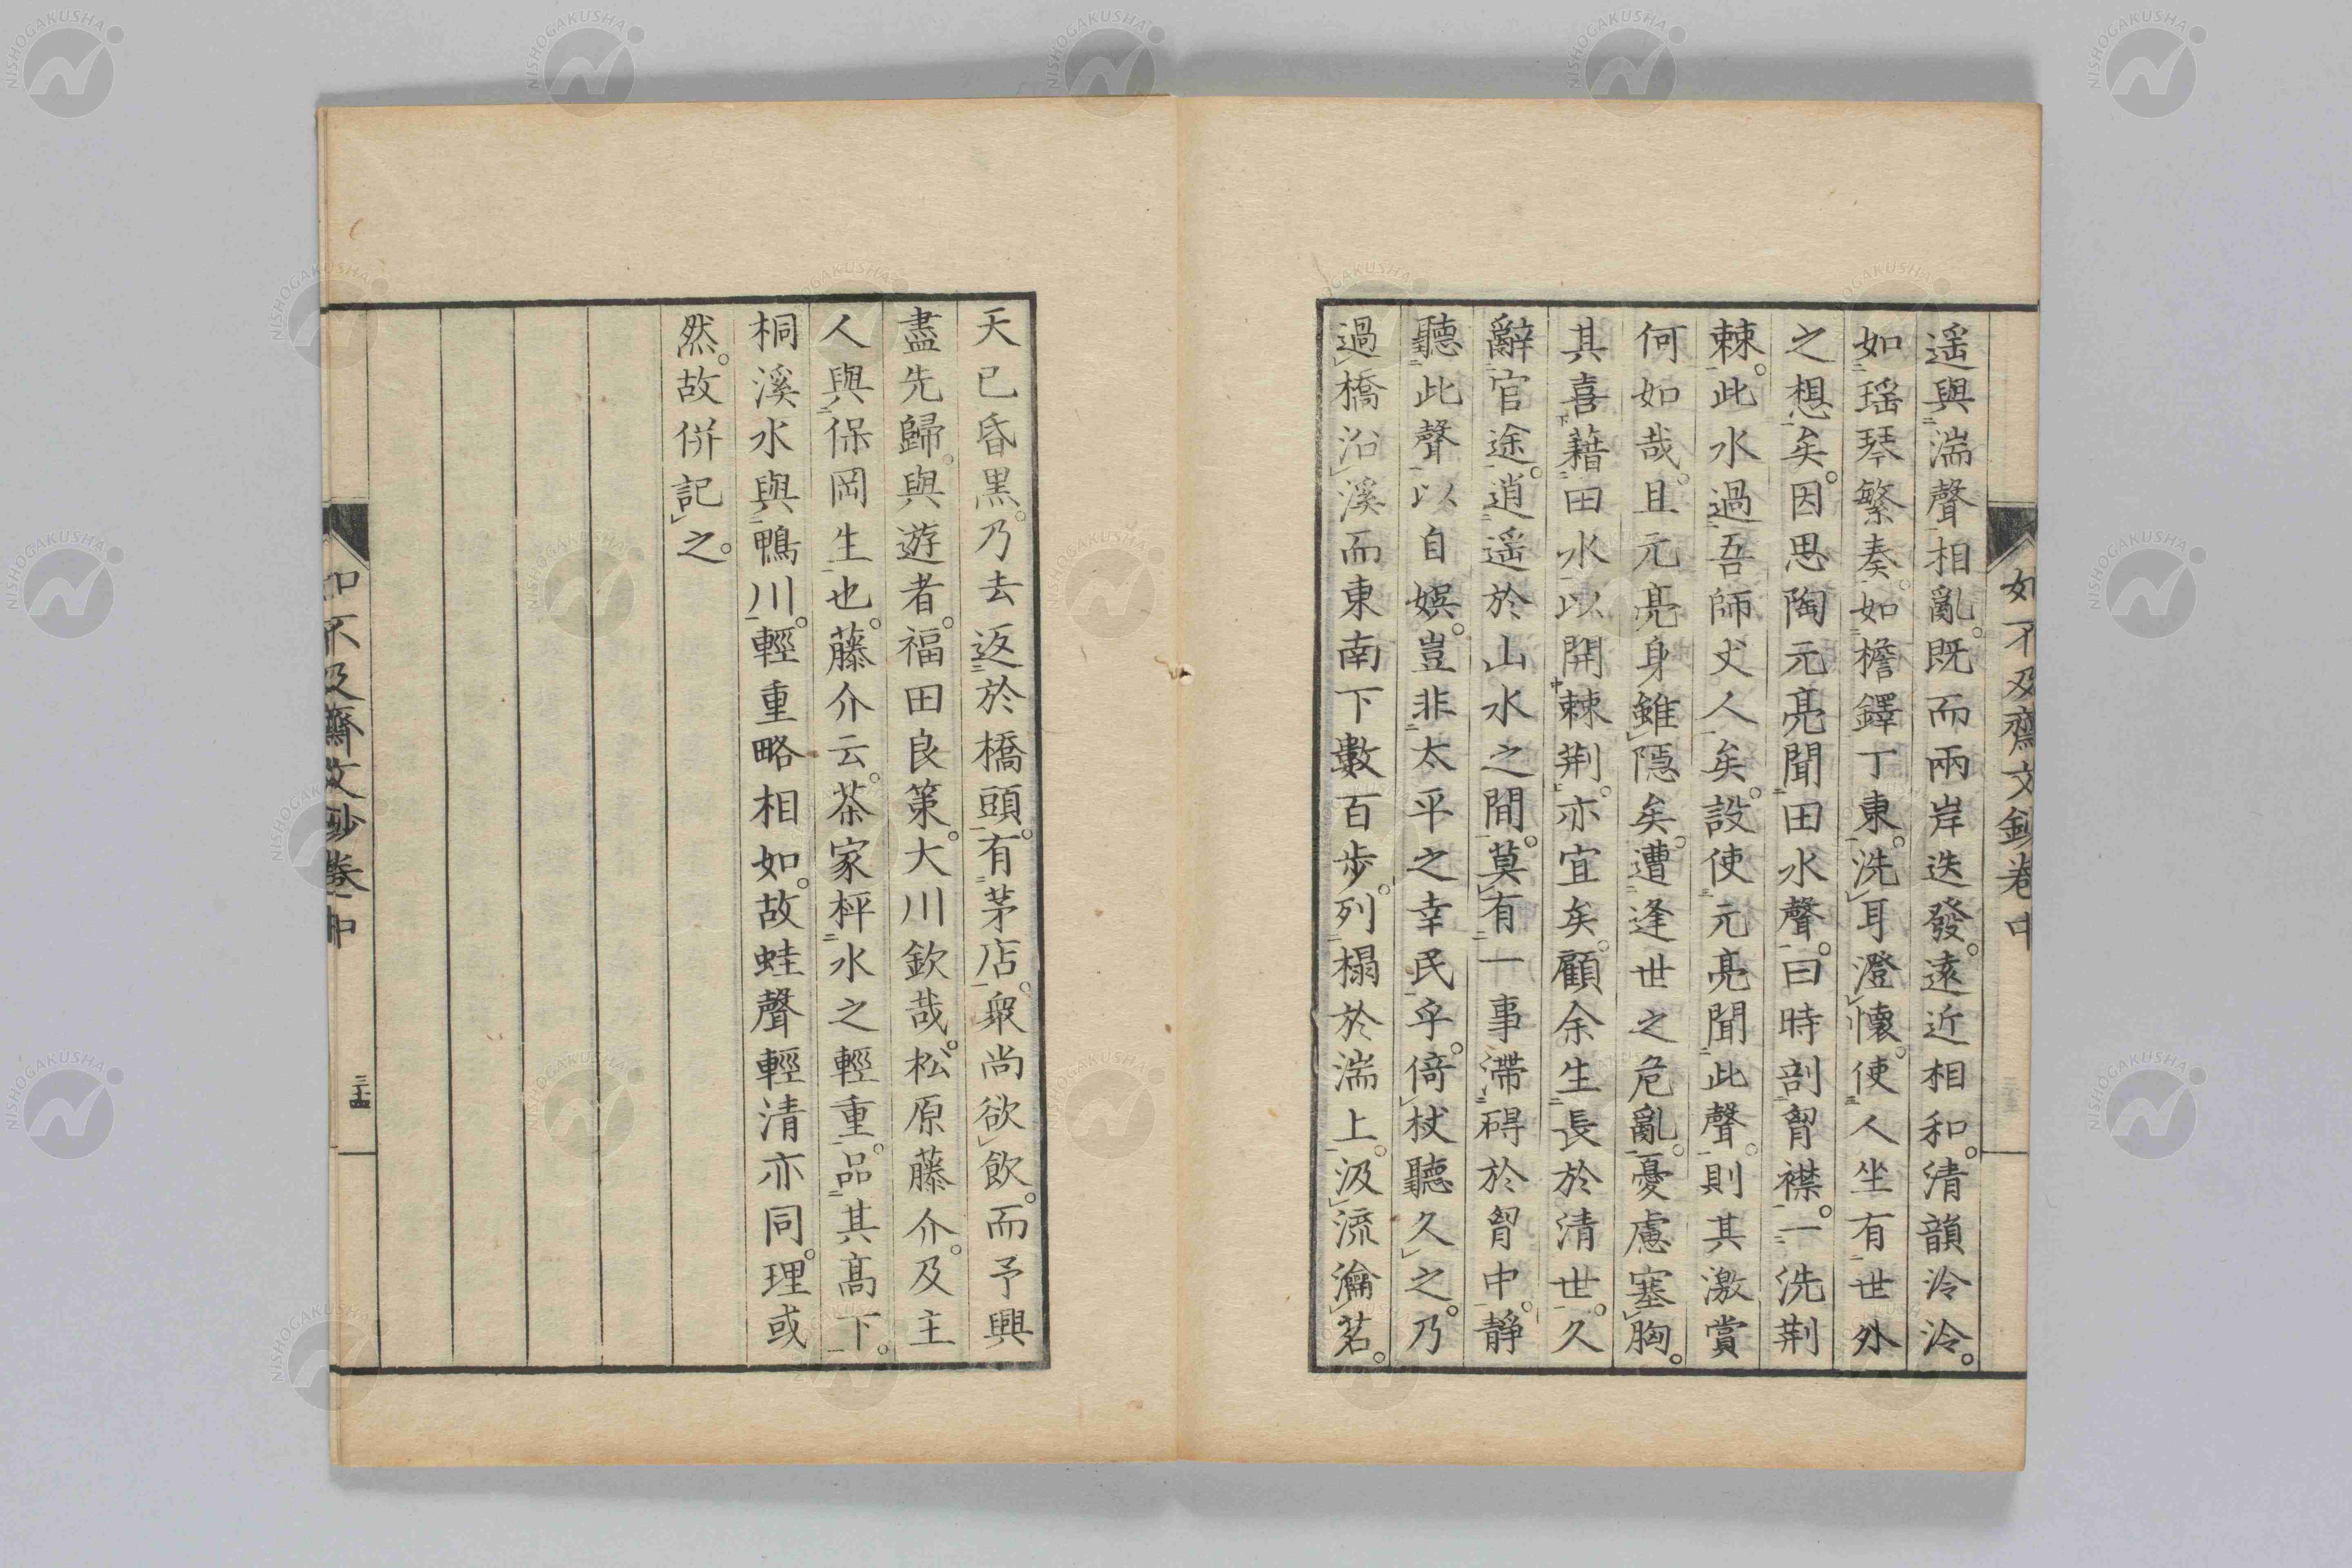 如不及齋文鈔卷中
遥與湍聲相亂。既而兩岸迭發。遠近相和。清韻泠泠。
如瑶琴繁奏。如檐鐸丁東。洗耳澄懷。使人坐有世外
之想矣。因思陶元亮聞田水聲。曰時剖胷襟。一洗荆
棘。此水過吾師丈人矣。設使元亮聞此聲。則其激賞
何如哉。且元亮身雖隠矣。遭逢世之危亂。憂慮塞胸。
其喜藉田水以開棘荆。亦宜矣。顧余生長於清世。久
辭官途。逍遥於山水之間。莫有一事滯碍於胷中。靜
聽此聲以自娯。豈非太平之幸民乎。倚杖聽久之。乃
過橋沿溪而東南下數百歩。列榻於湍上。汲流瀹茗。
天已昏黒。乃去返於橋頭。有茅店。衆尚欲飲。而予興
盡先歸。與遊者。福田良策。大川欽哉。松原藤介。及主
人與保岡生也。藤介云。茶家枰水之輕重。品其髙下。
桐溪水與鴨川。輕重略相如。故蛙聲輕清亦同。理或
然。故併記之。
如不及齋文鈔卷中
三十五
NISHOGAKUSHA